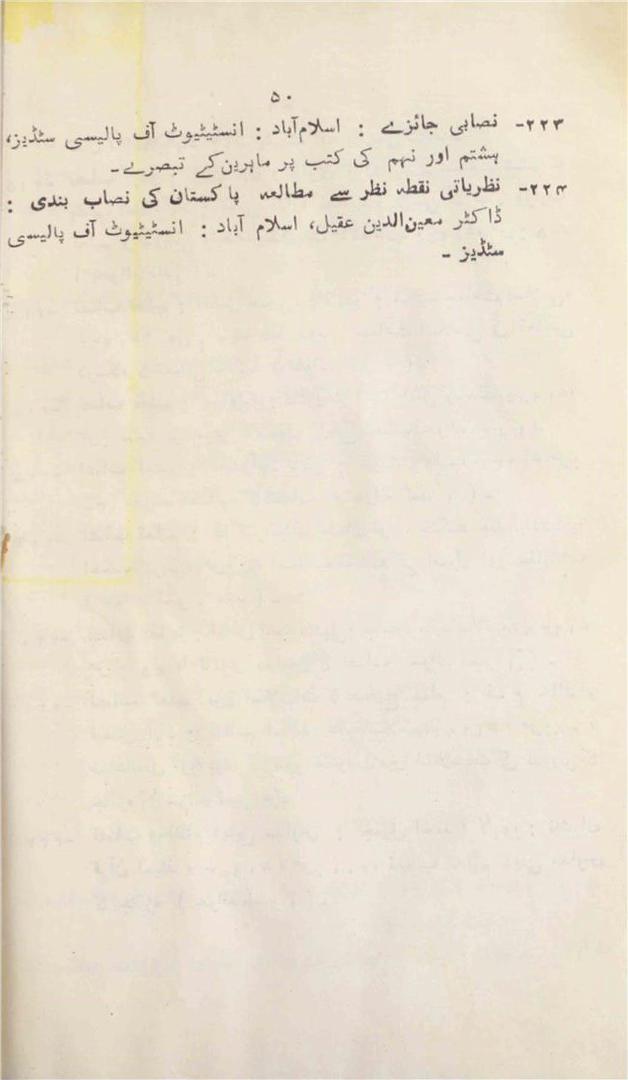 ۵۰
۲۲۳- نصابی جائزے : اسلام آباد : انسٹیٹیوٹ آف پالیسی سٹڈیز،
ہشتم اور نہم کی کتب پر ماہرین کے تبصرے۔
۲۲۴- نظریاتی نقطہ نظر سے مطالعہ پاکستان کی نصاب بندی :
ڈاکٹر معین الدین عقیل، اسلام آباد : انسٹیٹیوٹ آف پالیسی
سٹڈیز -